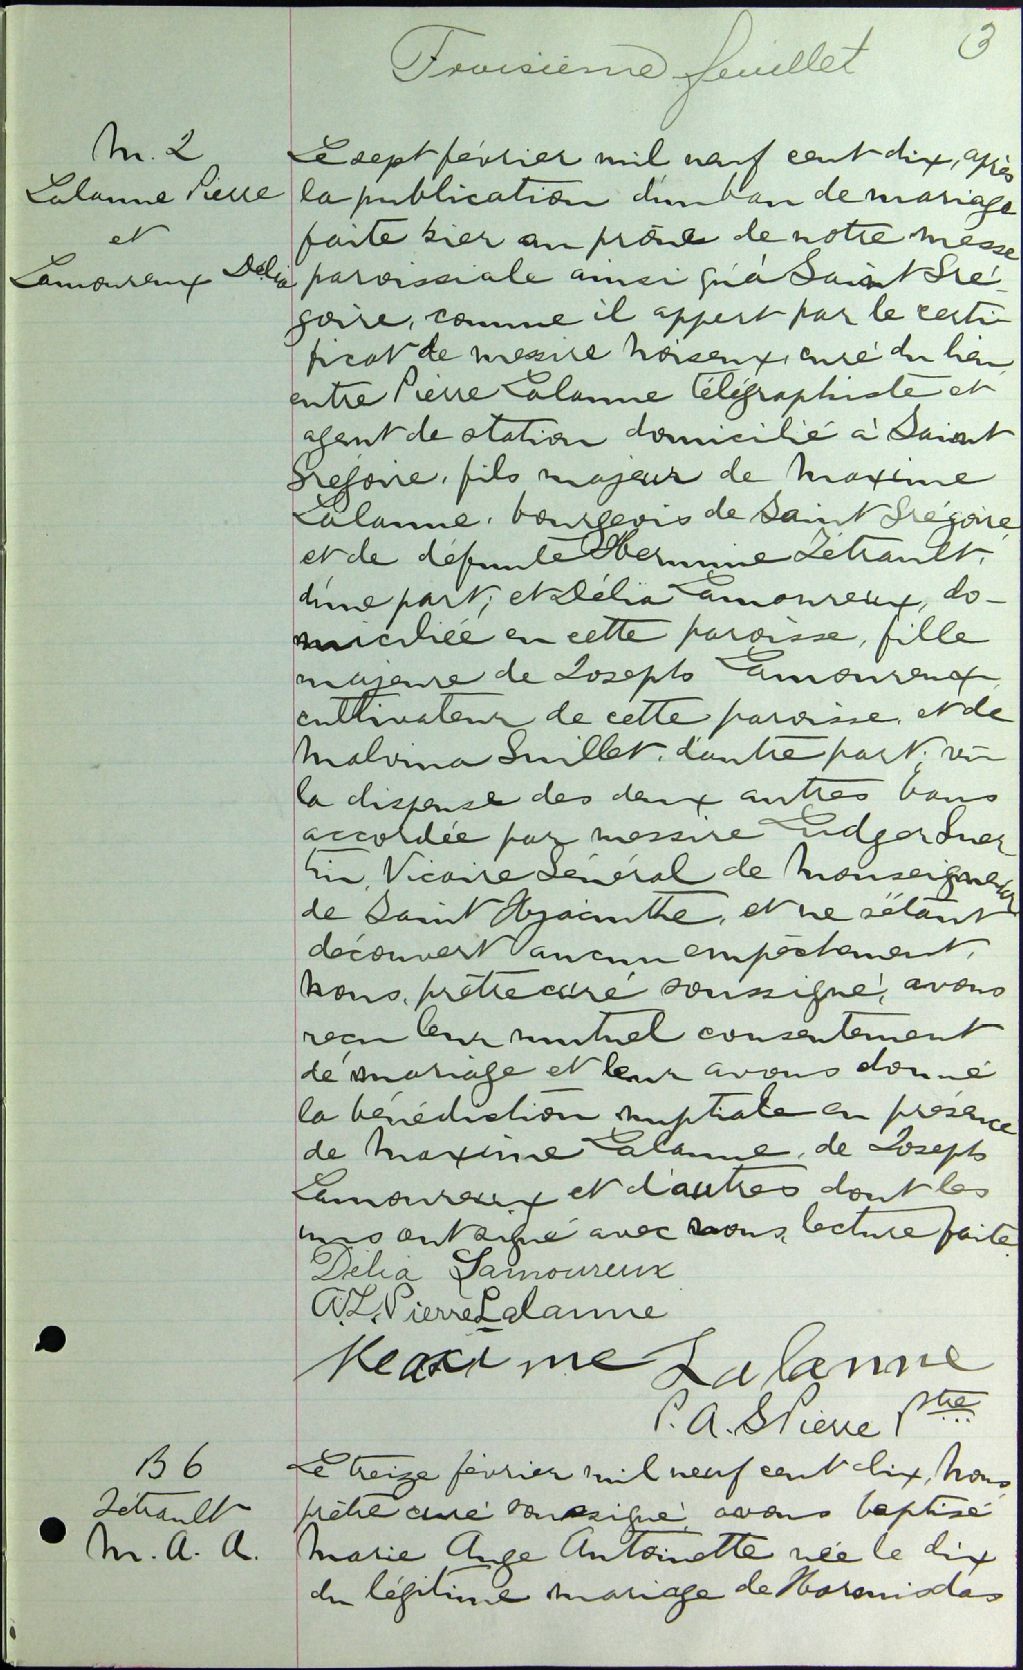 Troisième feuillet
3
M. 2
Lalanne Pierre
et
Lamoureux Délia
Le sept février mil neuf cent dix, après
la publication d'un ban de mariage
faite hier au prône de notre messe
paroissiale ainsi qu'à Saint Gré-
goire, comme il appert par le certi-
ficat de messire Noiseux, curé du lieu
entre Pierre Lalanne télégraphiste et
agent de station domicilié à Saint
Grégoire, fils majeur de Maxime
Lalanne, bourgeois de Saint Grégoire
et de défunte Hermine Tétrault,
d'une part; et Délia Lamoureux, do-
miciliée en cette paroisse, fille
majeure de Joseph Lamoureux
cultivateur de cette paroisse, et de
Malvina Guillet, d'autre part; vu
la dispense des deux autres bans
accordée par messire Ludger Guer-
tin, Vicaire Général de Monseigneur
de Saint Hyacinthe, et ne s'étant
découvert aucun empêchement,
Nous, prêtre curé soussigné, avons
reçu leur mutuel consentement
de mariage et leur avons donné
la bénédiction nuptiale en présence
de Maxime Lalanne, de Joseph
Lamoureux et d'autres dont les
uns ont signé avec nous, lecture faite.
Délia Lamoureux
A.L. Pierre Lalanne
Maxime Lalanne
P. A. S Pierre Ptre
B 6
Tétrault
M. A. A.
Le treize février mil neuf cent dix, Nous,
prêtre curé soussigné, avons baptisé
Marie Ange Antoinette née le dix
du légitime mariage de Hormisdas